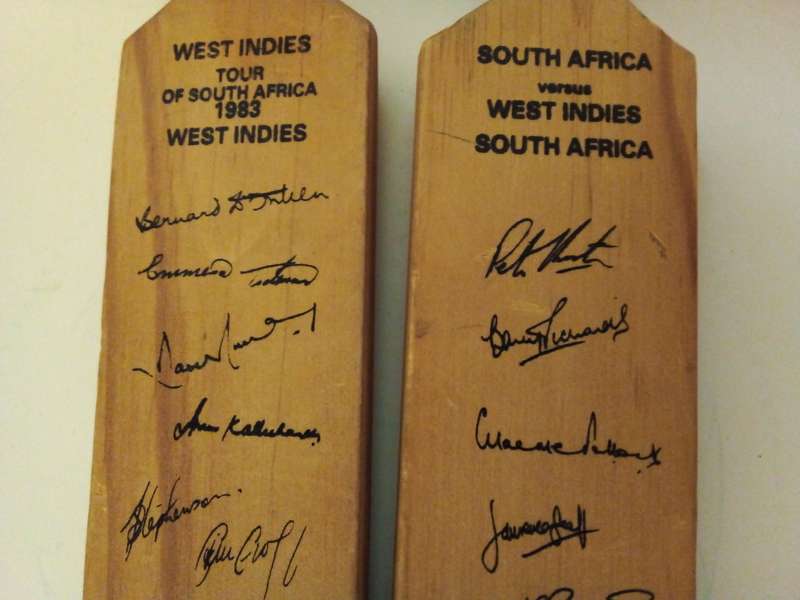 WEST INDIES
TOUR
OF SOUTH AFRICA
1983
WEST INDIES
Bernard
Emmerson Trotman
Alvin Kallicharran
Stephenson
Colin Croft
SOUTH AFRICA
versus
WEST INDIES
SOUTH AFRICA
Peter Kirsten
Barry Richards
Graeme Pollock